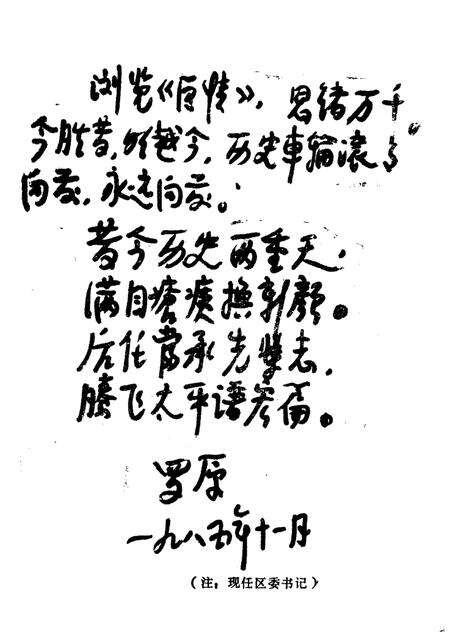 浏览《区情》，思绪万千。
今胜昔，明越今，历史車輪滚々
向前，永远向前。
昔今历史两重天，
满目疮痍换新颜。
后任当承先辈志，
腾飞太平谱新篇。
罗原
一九八五年十一月
（注：现任区委书记）